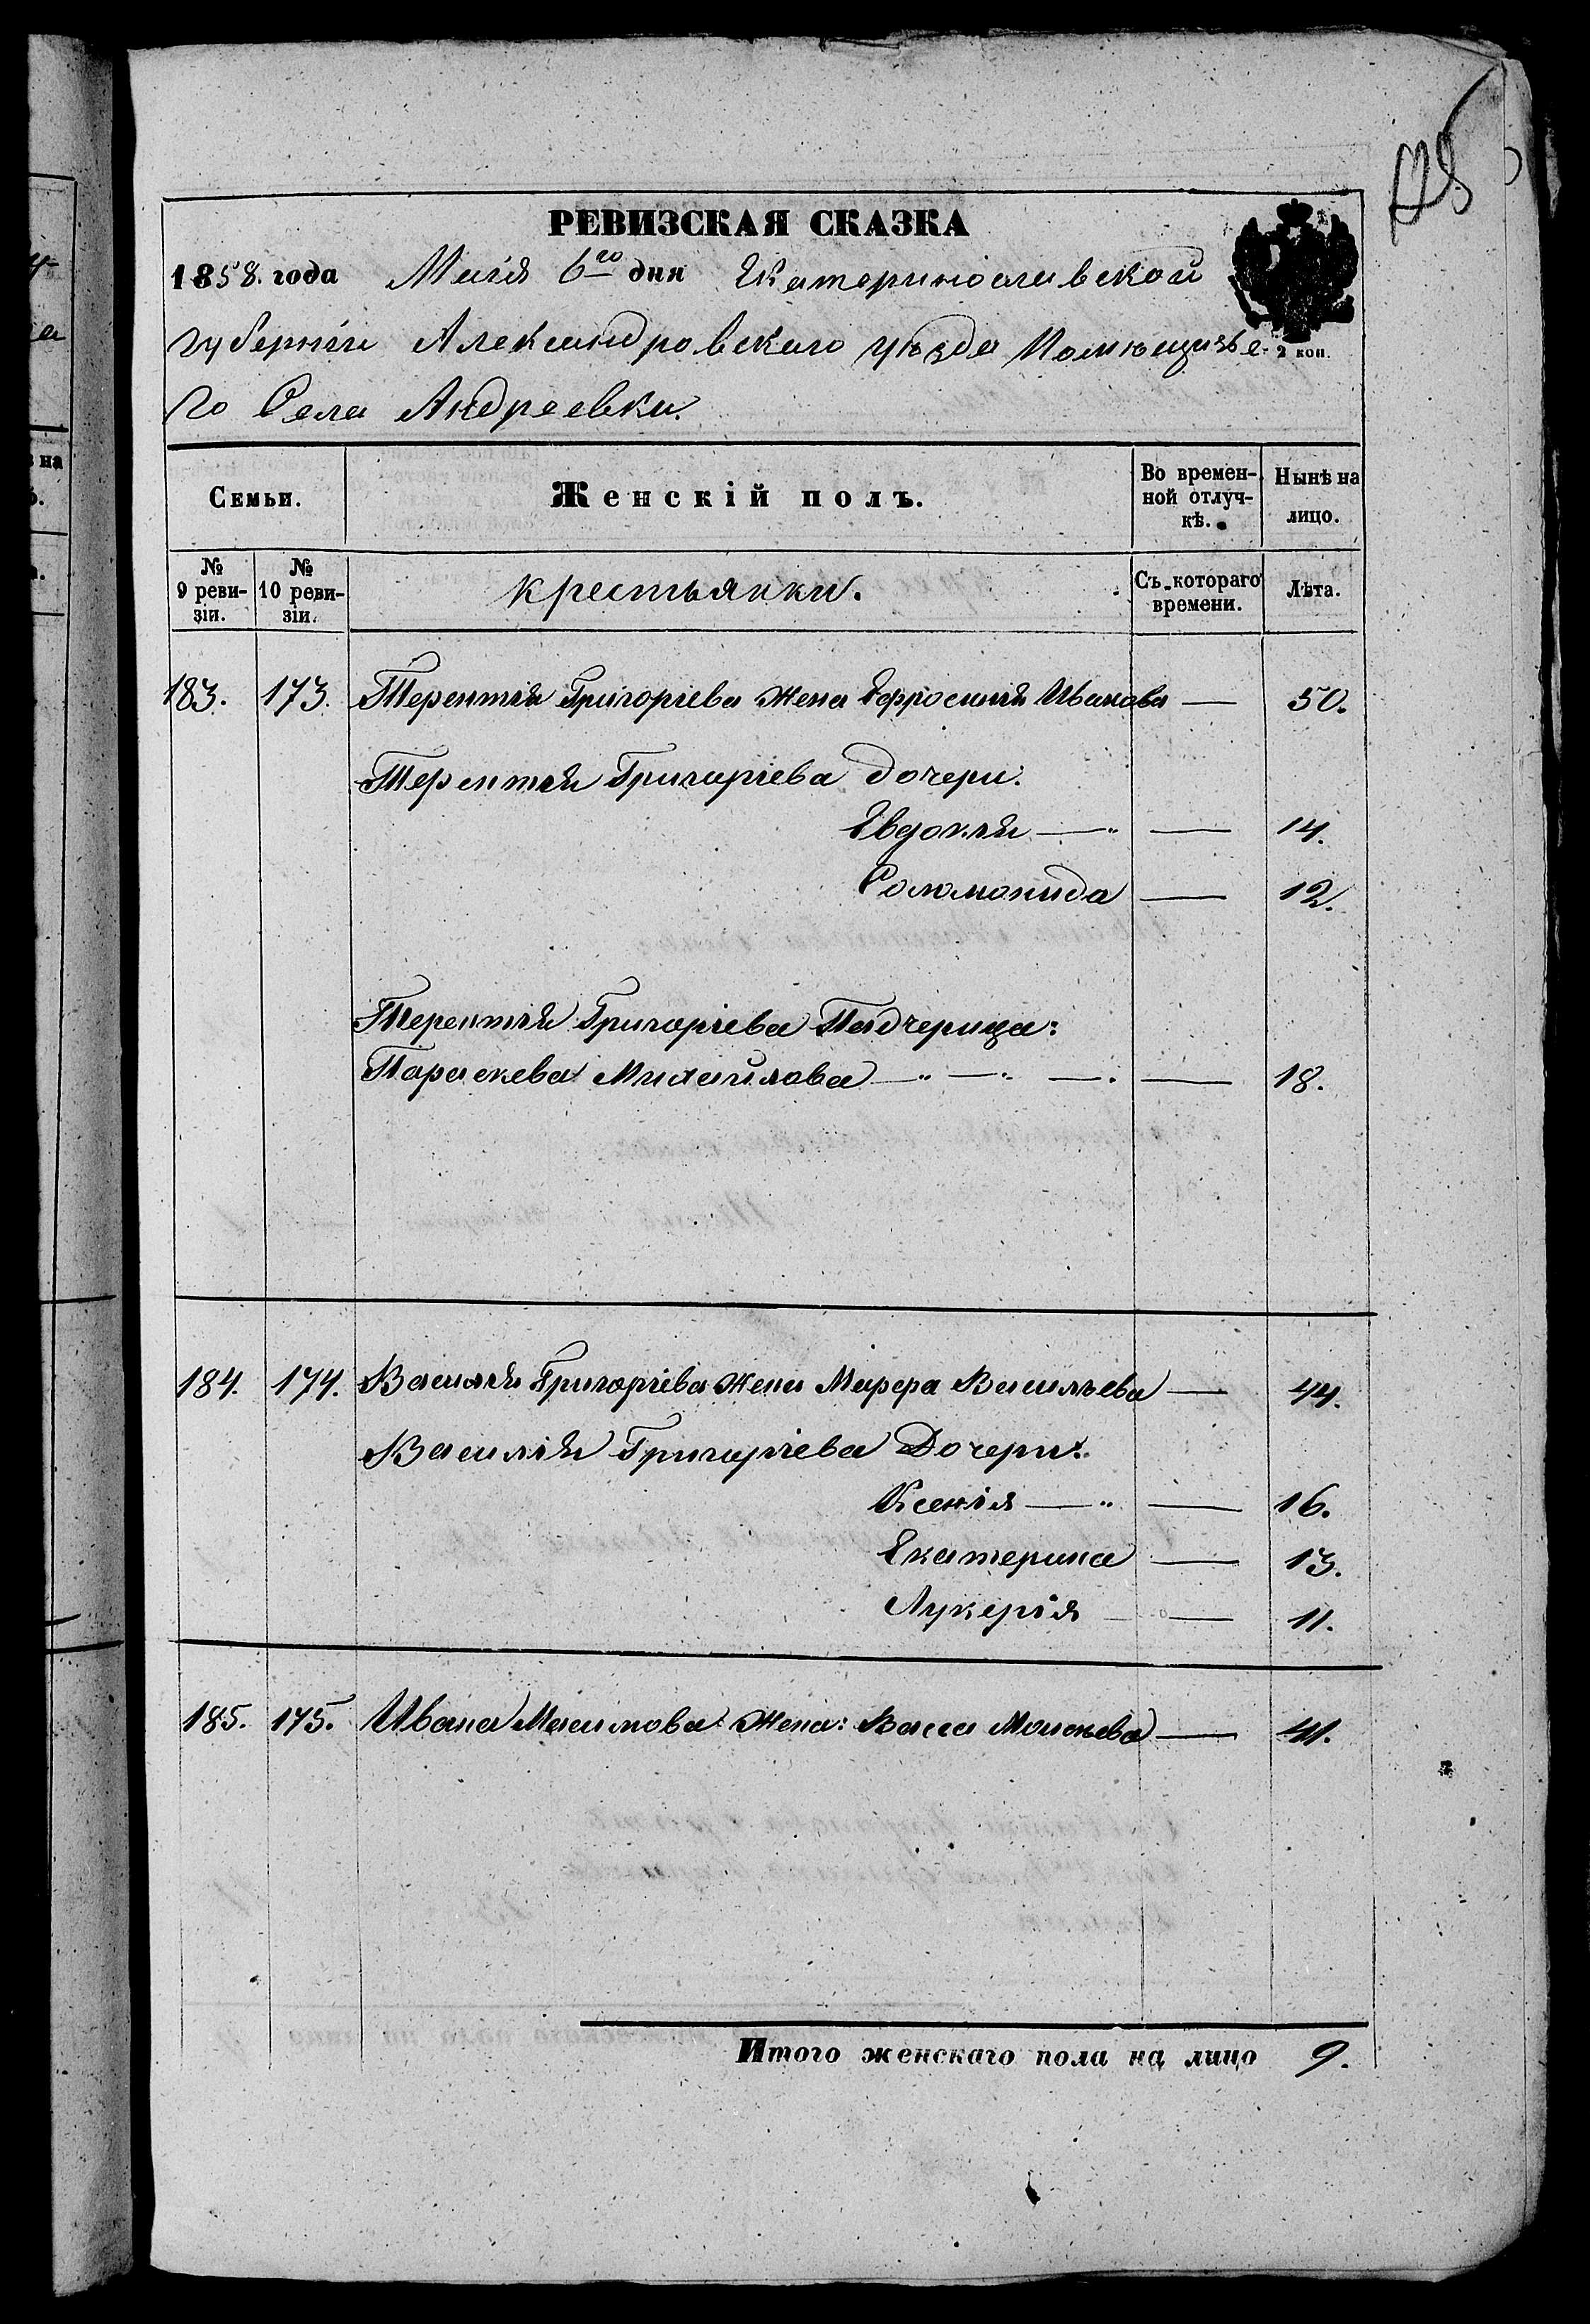 РЕВИЗСКАЯ СКАЗКА
1858. года Маія 6го дня Екатеринославской
губерніи Александровскаго уѣзда Помѣщичье-
2 коп.
го Села Андреевки.
Семьи.
Женскій полъ.
Во времен-
ной отлуч-
кѣ.
Нынѣ на
лицо.
№
9 реви-
зіи.
№
10 реви-
зіи.
крестьянки.
Съ котораго
времени.
Лѣта.
183. 173. Терентія Григоріева жена Ефросинія Иванова — 50.
Терентія Григоріева дочери:
Евдокія — " — 14.
Соломонида — 12.
Терентія Григоріева Падчерица:
Параскева Михайлова — " — " — " — 18.
184. 174. Василія Григоріева жена Марфа Васильева — 44.
Василія Григоріева Дочери:
Ксенія — " — 16.
Екатерина — 13.
Лукерія — — 11.
185. 175. Ивана Максимова Жена: Васса Моисеева — 41.
Итого женскаго пола на лицо 9.